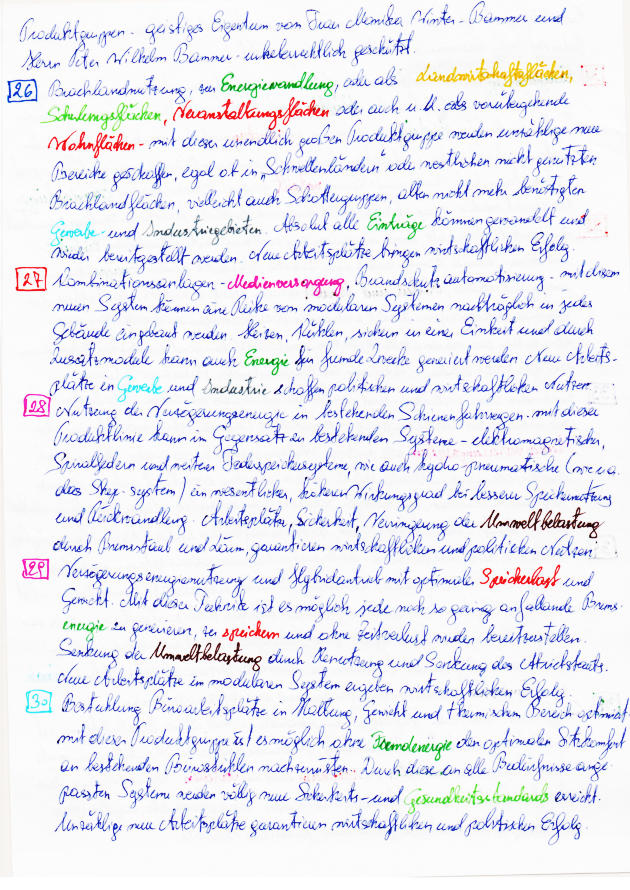 Produktgruppen - geistiges Eigentum von Frau Monika Winter-Bammer und
Herrn Peter Wilhelm Bammer - urheberrechtlich geschützt.
26 Brachlandnutzung, zur Energiewandlung, oder als Landwirtschaftsflächen,
Schulungsflächen, Veranstaltungsflächen oder auch u.U. als vorübergehende
Wohnflächen - mit dieser unendlich großen Produktgruppe werden unzählige neue
Bereiche geschaffen, egal ob in "Schwellenländern" oder westlichen nicht genutzten
Brachlandflächen, vielleicht auch Schottergruppen, alten nicht mehr benötigten
Gewerbe- und Industriegebieten. Absolut alle Einträge können gewandelt und
wieder bereitgestellt werden. Neue Arbeitsplätze bringen wirtschaftlichen Erfolg.
27 Kombinationsanlagen - Medienversorgung, Brandschutzautomatisierung - mit diesem
neuen System können eine Reihe von modularen Systemen nachträglich in jedes
Gebäude eingebaut werden. Heizen, Kühlen, sichern in einer Einheit und durch
Zusatzmodule kann auch Energie für fremde Zwecke generiert werden. Neue Arbeits-
plätze in Gewerbe und Industrie schaffen politischen und wirtschaftlichen Nutzen.
28 Nutzung der Verzögerungsenergie in bestehenden Schienenfahrzeugen. mit dieser
Produktlinie kann im Gegensatz zu bestehenden Systeme - elektromagnetischer,
Spiralfedern und weiteren Federspeichersysteme, wie auch hydro-pneumatische (wie u.a.
das Step-system) ein wesentlicher, höherer Wirkungsgrad bei besserer Speichernutzung
und Rückwandlung. Arbeitsplätze, Sicherheit, Verringerung der Umweltbelastung
durch Bremsstaub und Lärm, garantieren wirtschaftlichen und politischen Nutzen.
29 Verzögerungsenergienutzung und Hybridantrieb mit optimaler Speicherlast und
Gewicht. Mit dieser Technik ist es möglich jede noch so gering anfallende Brems-
energie zu generieren, zu speichern und ohne Zeitverlust wieder bereitzustellen.
Senkung der Umweltbelastung durch Benutzung und Senkung des
Neue Arbeitsplätze im modularen System ergeben wirtschaftlichen Erfolg.
30 Bestuhlung Büroarbeitsplätze in Haltung, Gewicht und thermischen Bereich optimiert
mit dieser Produktgruppe ist es möglich ohne Fremdenergie den optimalen Sitzkomfort
an bestehenden Bürostühlen nachzurüsten. Durch diese an alle Bedürfnisse ange-
passten Systeme werden völlig neue Sicherheits- und Gesundheitsstandards erreicht.
Unzählige neue Arbeitsplätze garantieren wirtschaftlichen und politischen Erfolg.